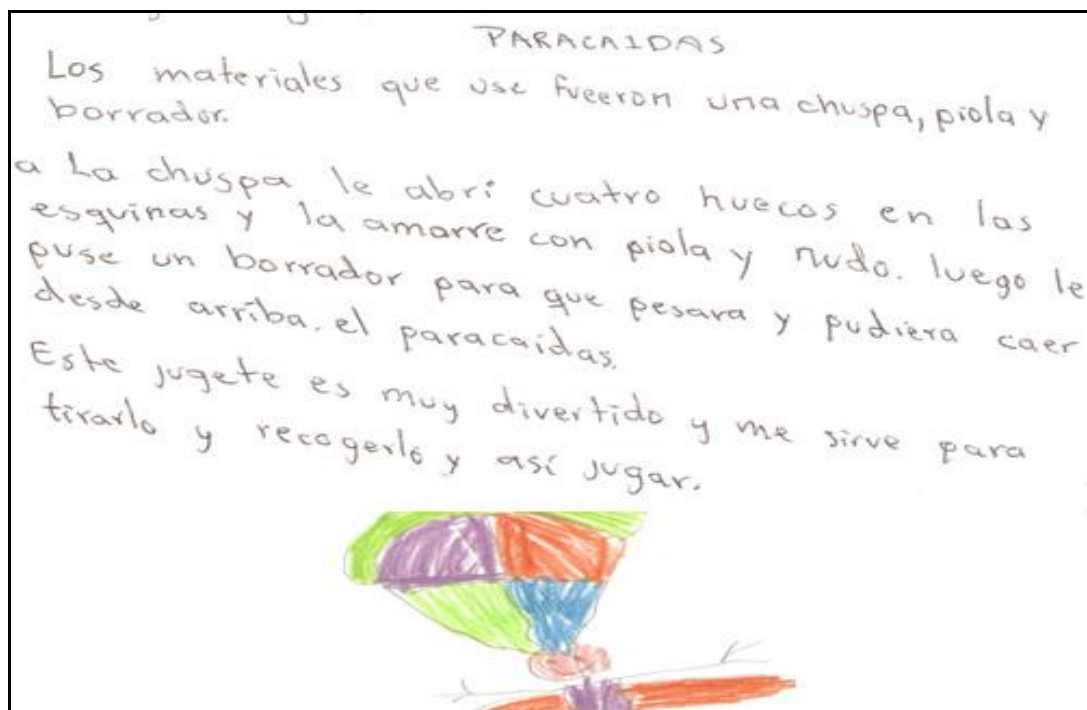 PARACAIDAS
Los materiales que use fueeron una chuspa, piola y
borrador.
a La chuspa le abri cuatro huecos en las
esquinas y la amarre con piola y nudo. luego le
puse un borrador para que pesara y pudiera caer
desde arriba. el paracaidas.
Este jugete es muy divertido y me sirve para
tirarlo y recogerlo y así jugar.